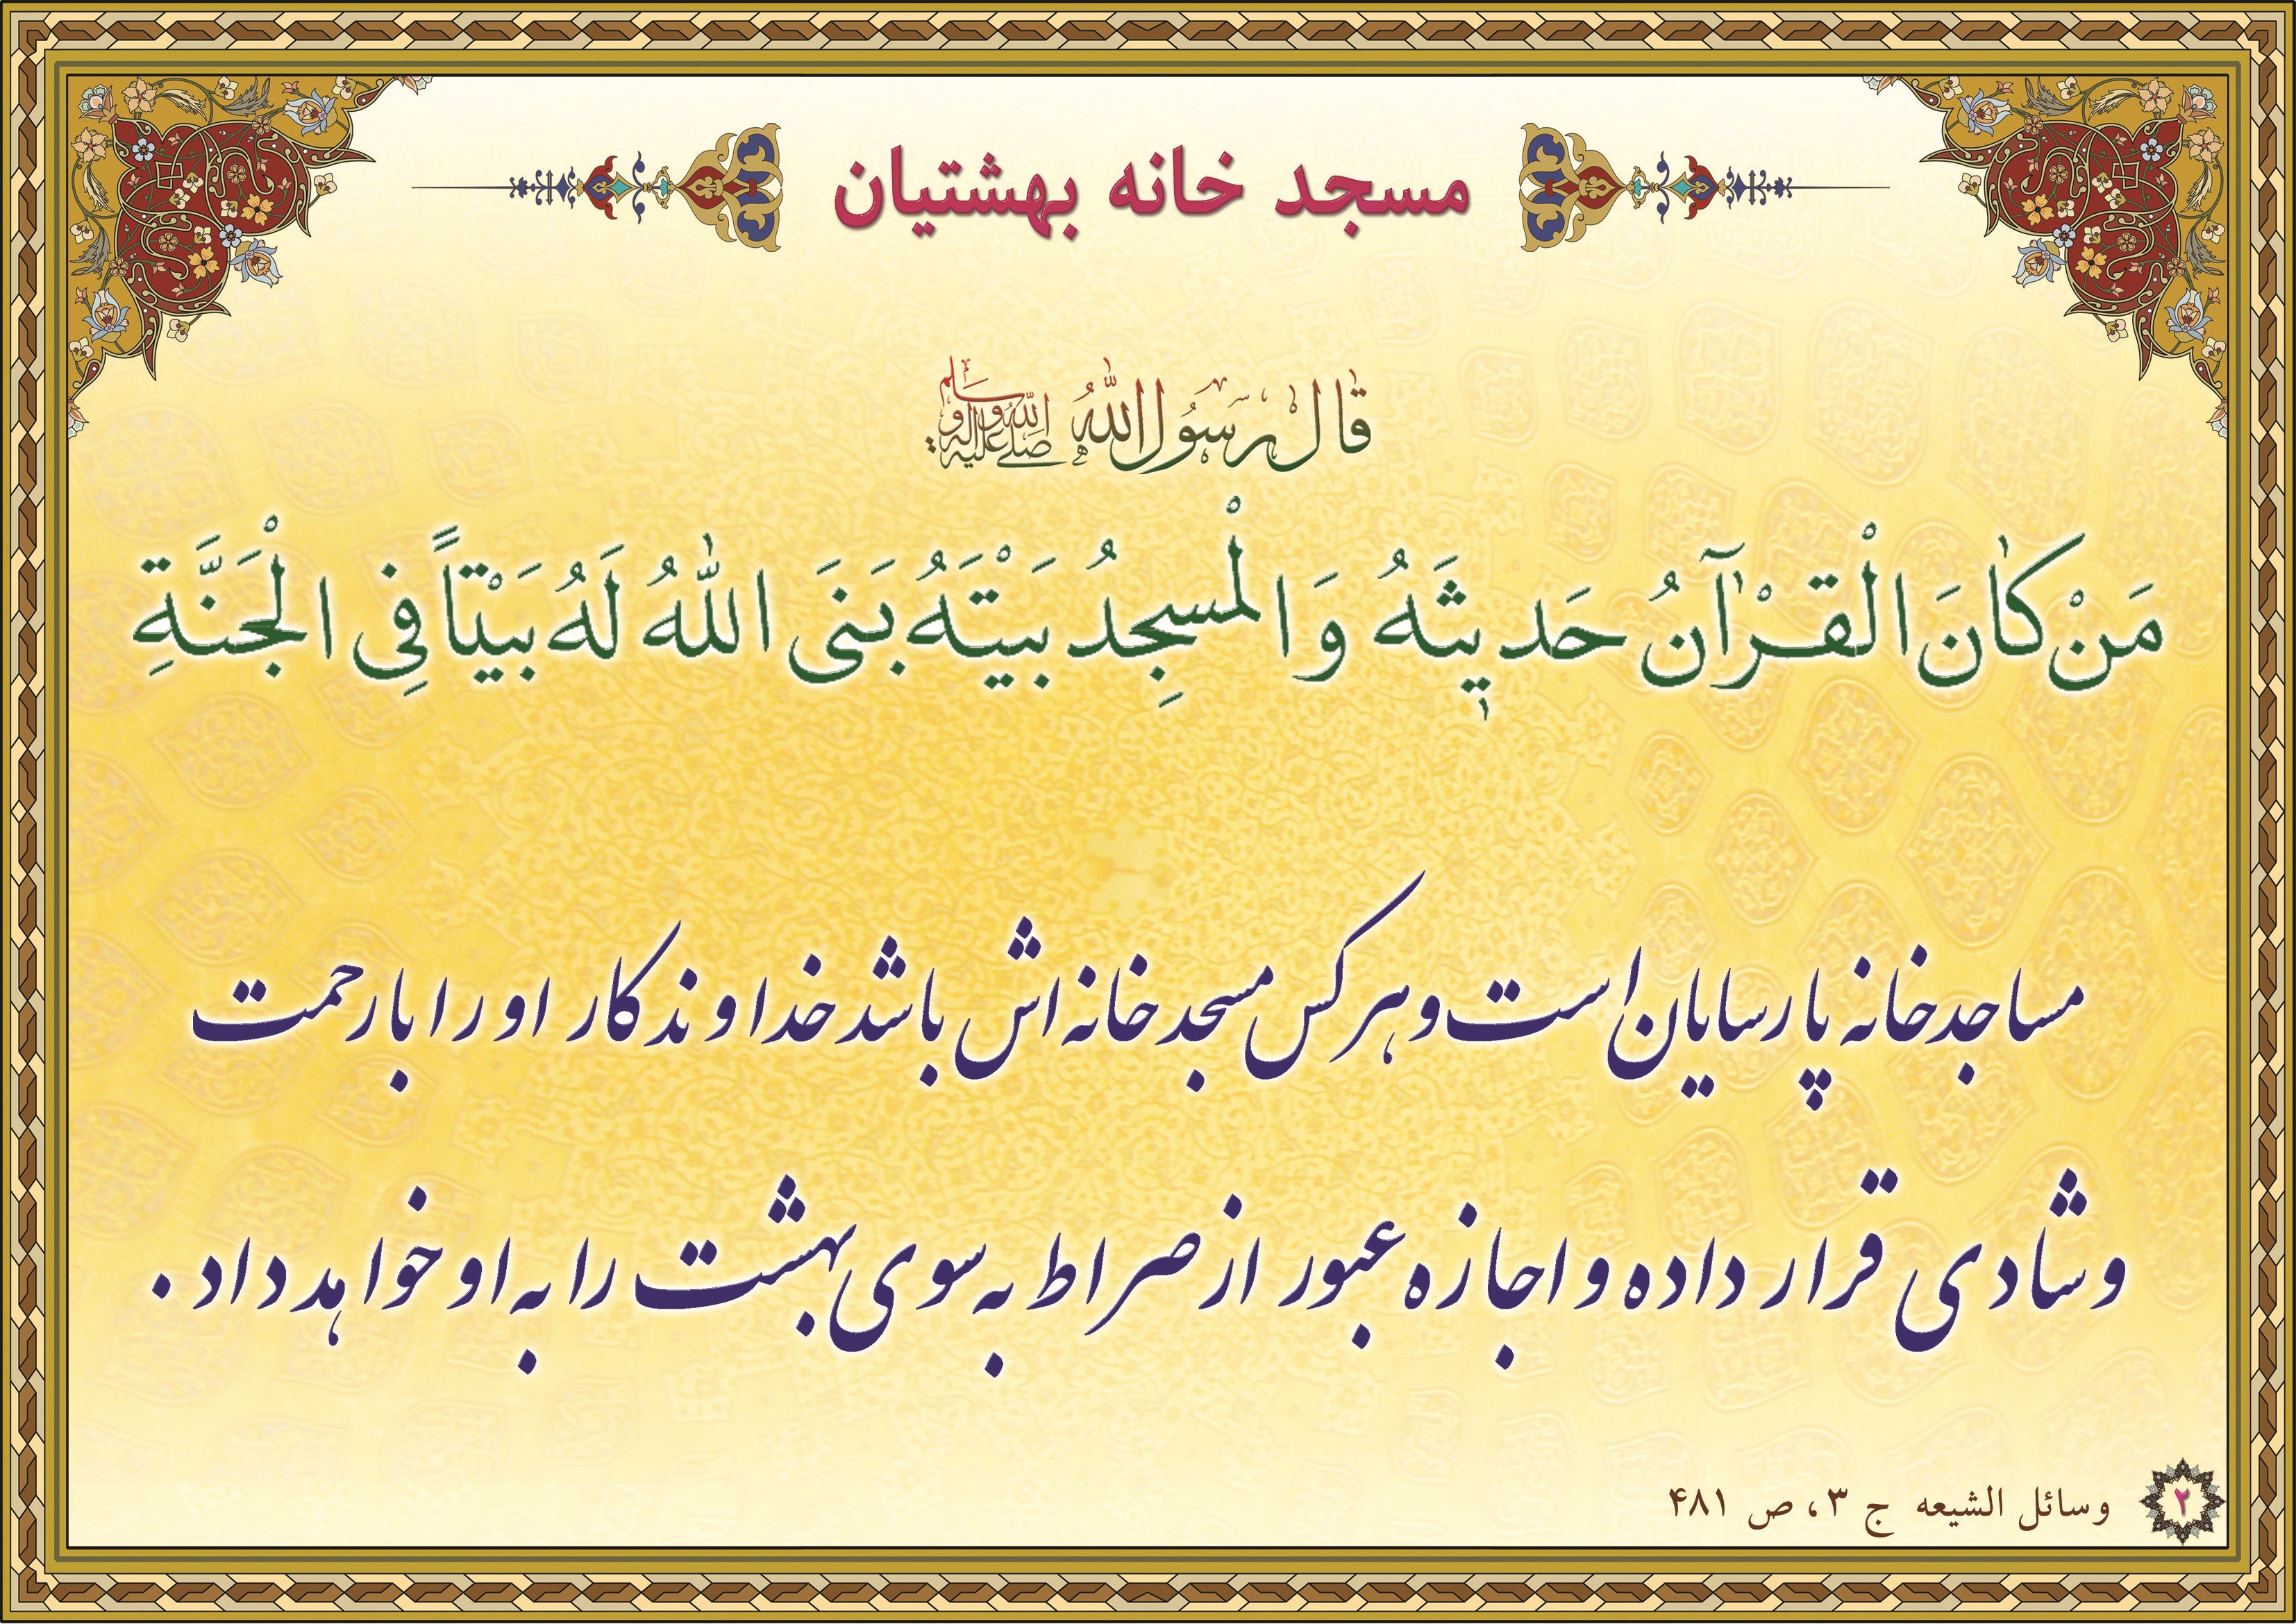 مسجد خانه بهشتیان
قال رسول الله صلی الله علیه وآله وسلم
مَنْ كٰانَ الْقُرْآنُ حَديثَهُ وَ الْمسجِدُ بَيْتَهُ بَنَی اللّٰهُ لَهُ بَيْتاً فِی الْجَنَّةِ
مساجد خانه پارسایان است و هر کس مسجد خانه اش باشد خداوند کار او را با رحمت
و شادی قرار داده و اجازه عبور از صراط به سوی بهشت را به او خواهد داد .
۲ وسائل الشیعه ج ۳، ص ۴۸۱